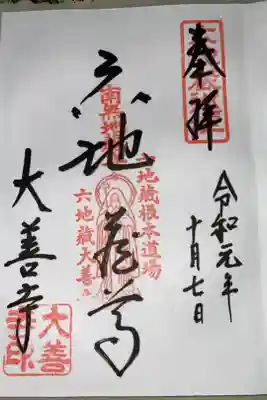 奉拝
令和元年
十月七日
六地蔵尊
六地蔵根本道場
南無地
六地蔵大善
大善寺
大善